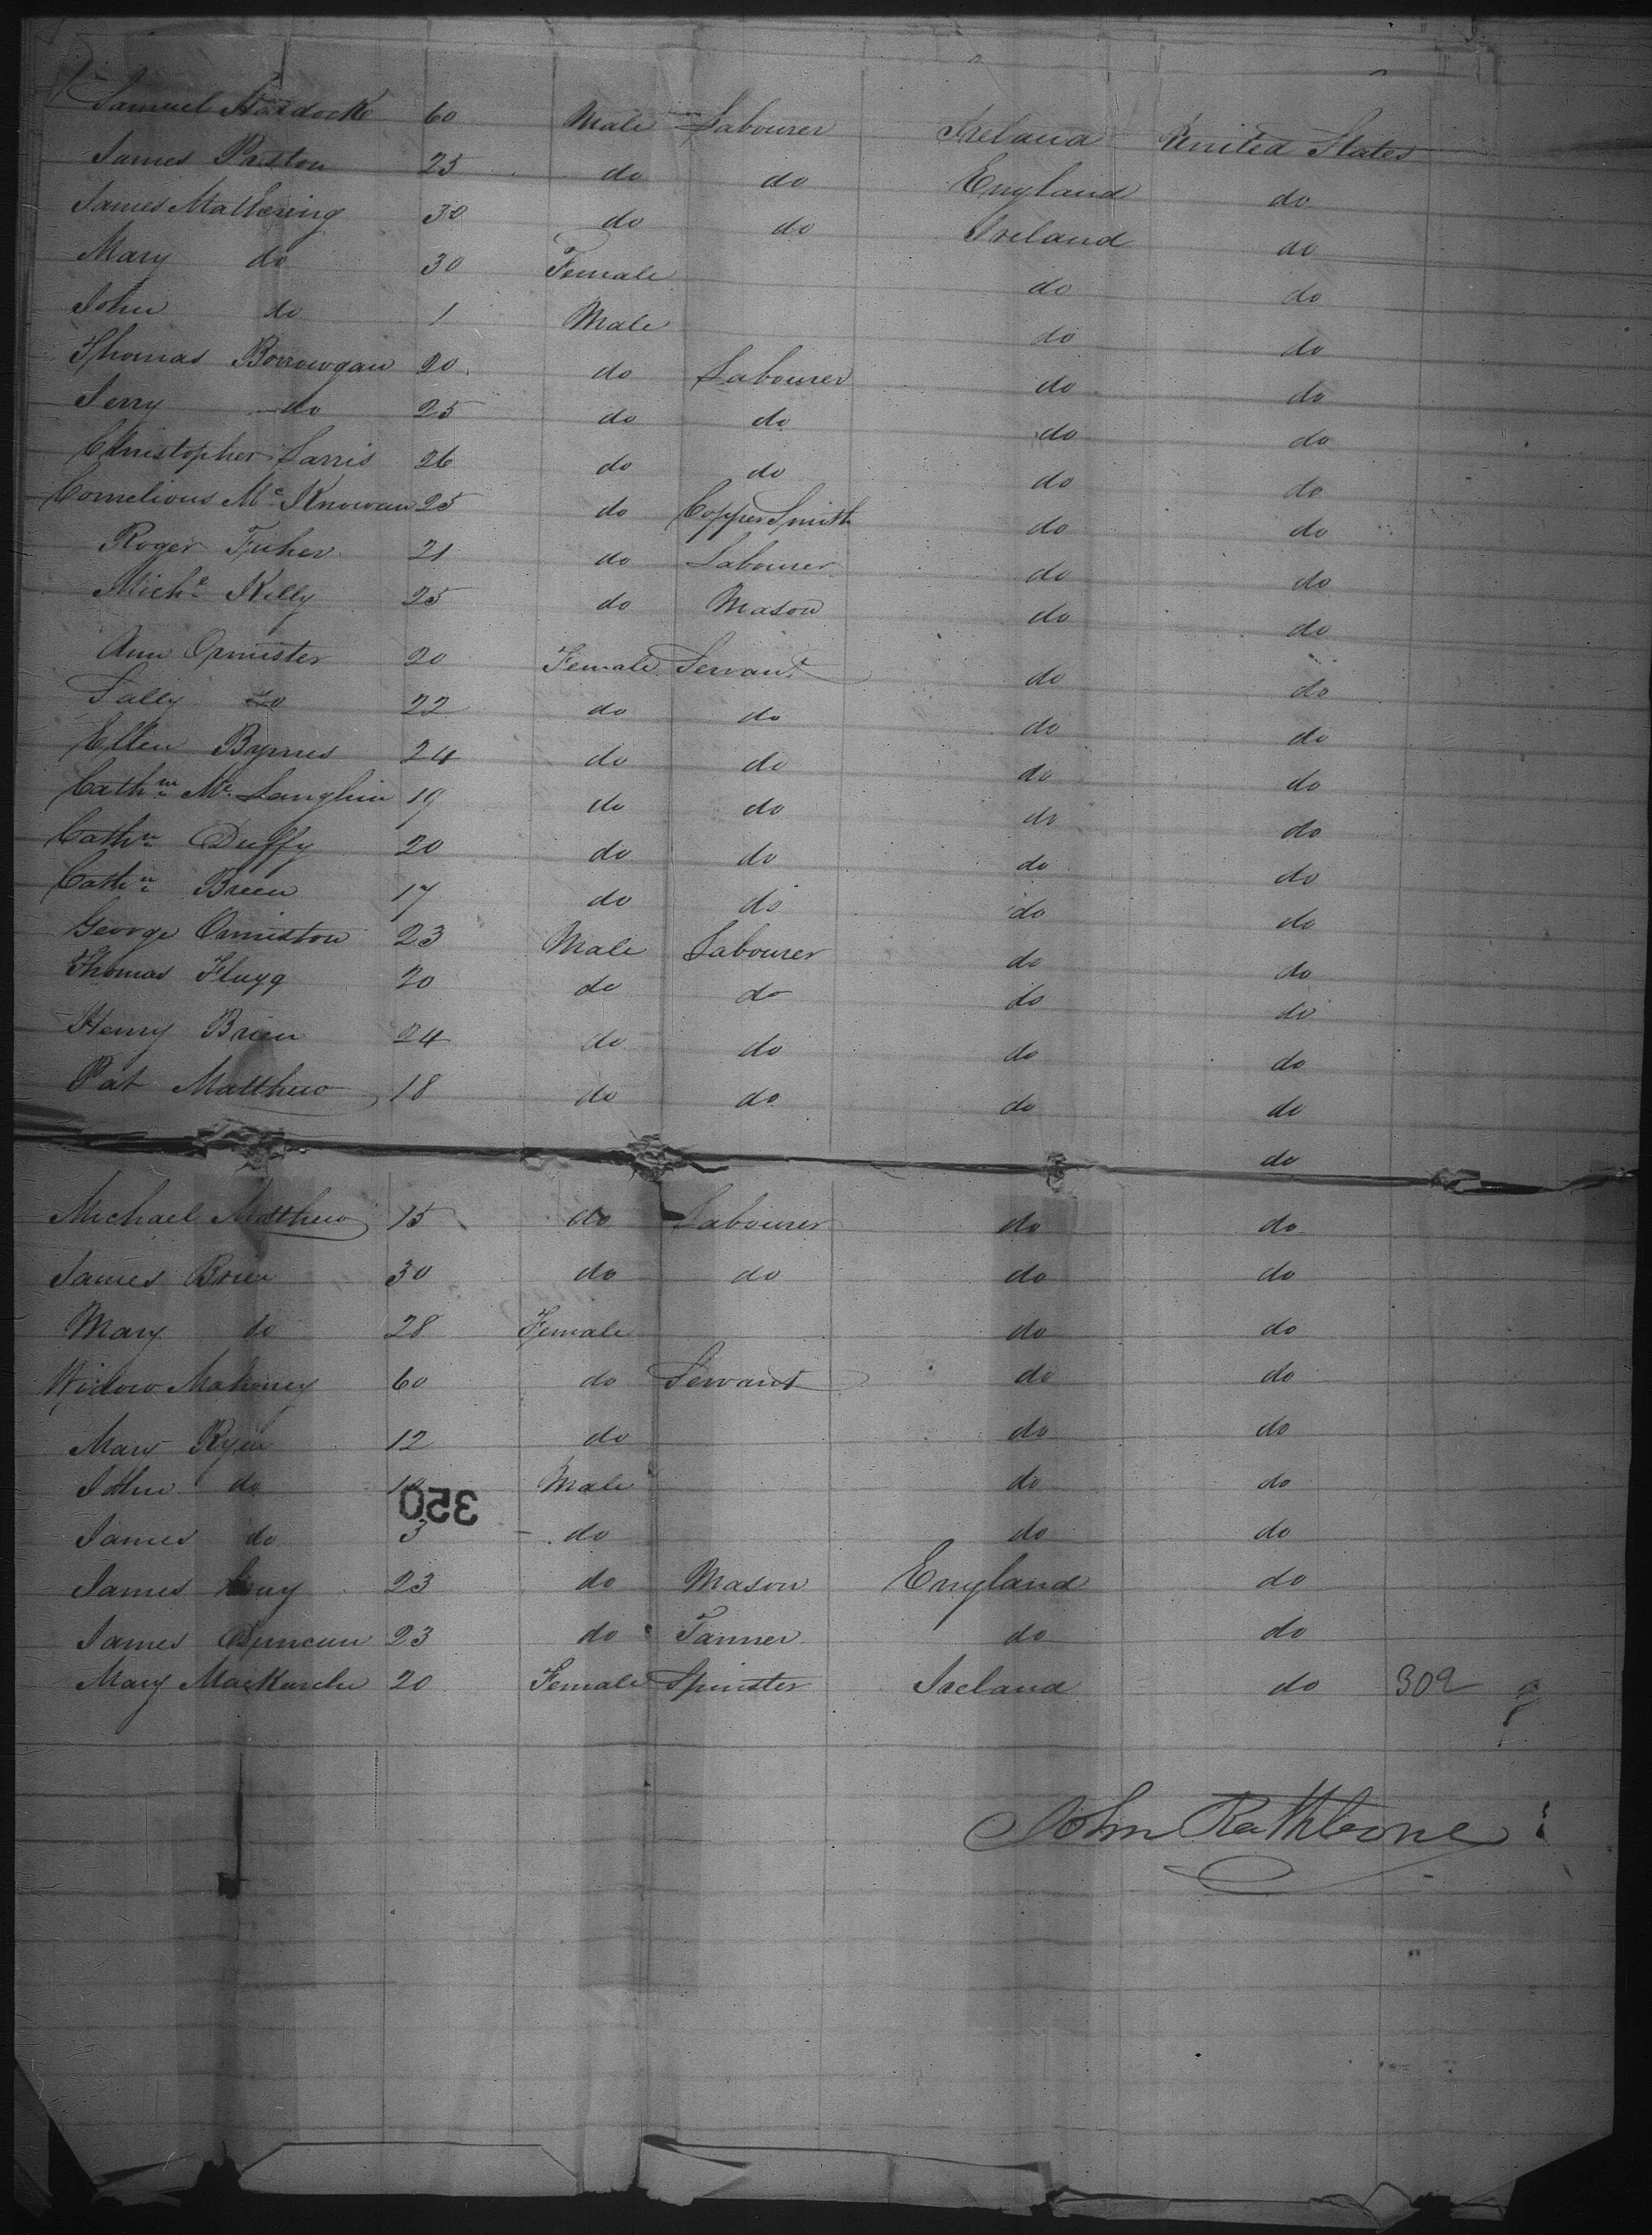 Samuel Haddock 60 Male Labourer Ireland United States
James Preston 25 do do England do
James Mathering 30 do do Ireland do
Mary do 30 Female do do
John do 1 Male do do
Thomas Borrowgan 20 do Labourer do do
Jerry do 25 do do do do
Christopher Larris 26 do do do do
Cornelious Mc Knowan 25 do Copper Smith do do
Roger Fisher 21 do Labourer do do
Michl Killy 25 do Mason do do
Ann Ormister 20 Female Servant do do
Sally do 22 do do do do
Ellen Byrnes 24 do do do do
Cathne Mc Langhin 19 do do do do
Cathn Duffy 20 do do do do
Cathn Breen 17 do do do do
George Ormiston 23 Male Labourer do do
Thomas Flugg 20 do do do do
Henry Brien 24 do do do do
Pat Matthew 18 do do do do
do
Michael Matthew 15 do Labourer do do
James Brien 30 do do do do
Mary do 28 Female do do
Widow Mahoney 60 do Servant do do
Mary Ryan 12 do do do
John do Male do do
350
James do 3 do do do
James 23 do Mason England do
James Duncan 23 do Tanner do do
Mary 20 Female Spinster Ireland do 302
John Rathbone